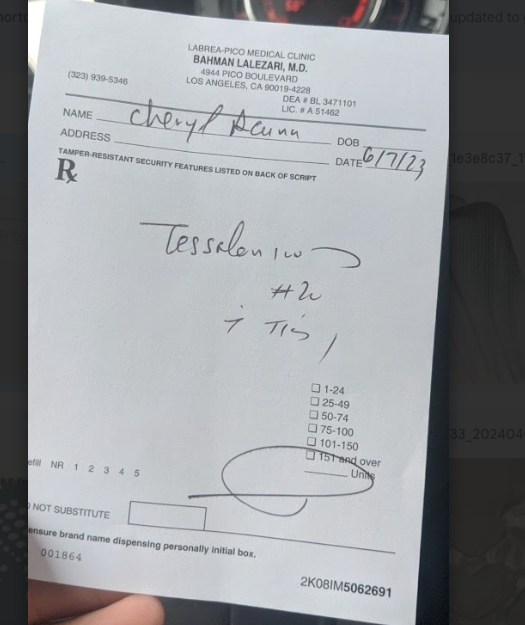 LABREA-PICO MEDICAL CLINIC
BAHMAN LALEZARI, M.D.
4944 PICO BOULEVARD
(323) 939-5346
LOS ANGELES, CA 90019-4228
DEA # BL 3471101
LIC. # A 51462
NAME Cheryl
DOB
ADDRESS
DATE 6/7/23
TAMPER-RESISTANT SECURITY FEATURES LISTED ON BACK OF SCRIPT
Rx
Tessalon
1-24
25-49
50-74
75-100
101-150
151 and over
Units
efill NR 1 2 3 4 5
NOT SUBSTITUTE
ensure brand name dispensing personally initial box.
001864
2K08IM5062691
updated to
1e3e8c37_1
33_202404